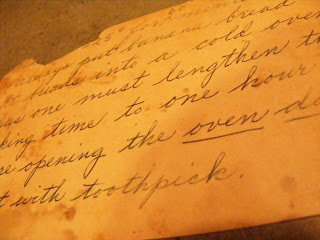 always put banana bread
breads into a cold oven
as one must lengthen th
king time to one hour
re opening the oven do
t with toothpick.